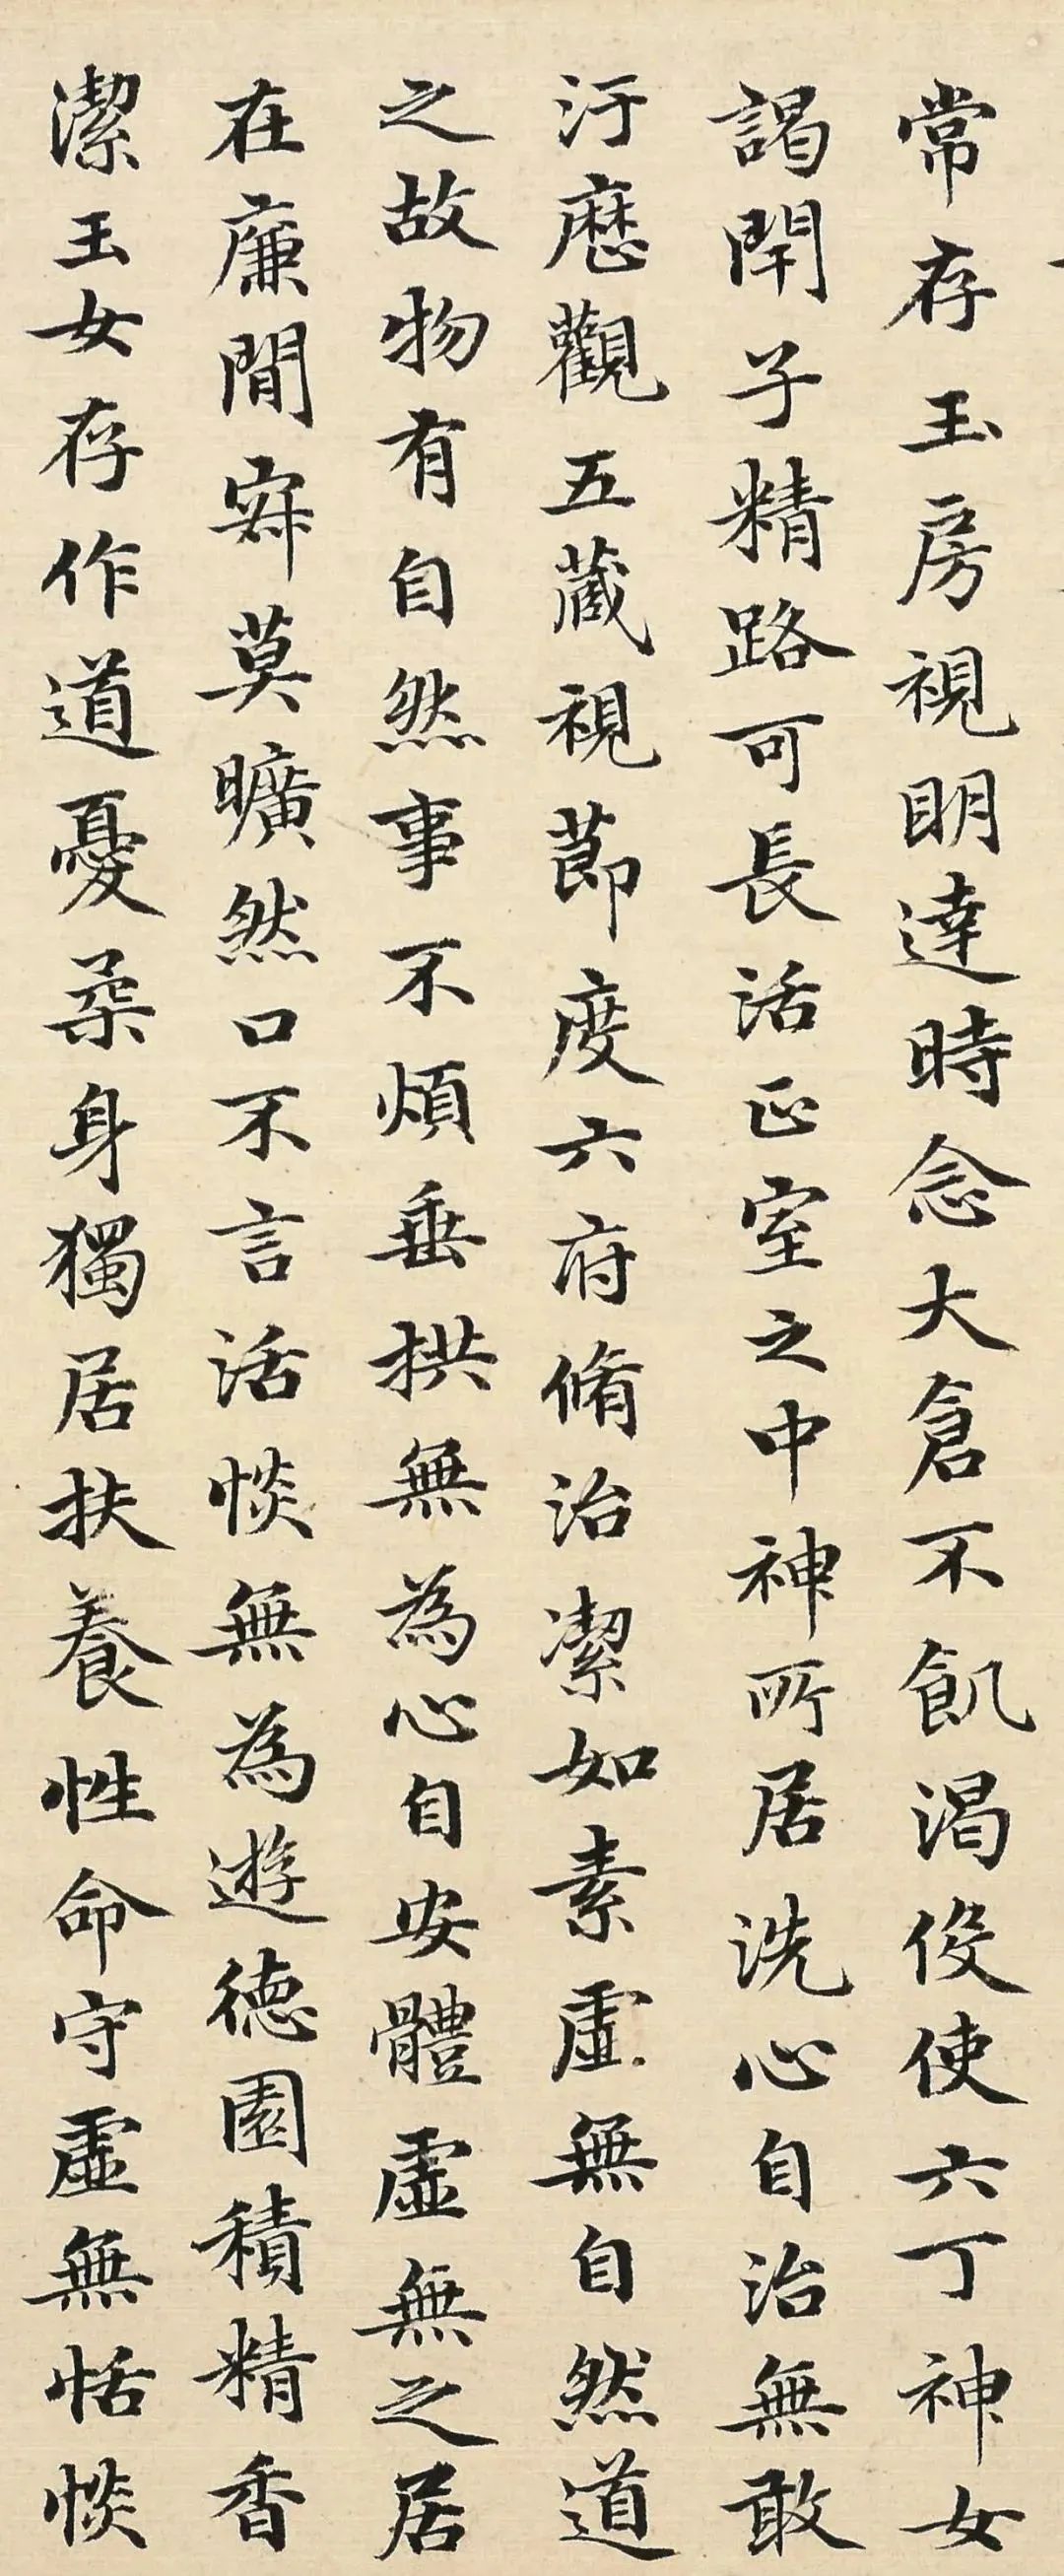 常存玉房視明達時念大倉不飢渴役使六丁神女
謁閇子精路可長活正室之中神所居洗心自治無敢
汙歷觀五藏視節度六府脩治潔如素虛無自然道
之故物有自然事不煩垂拱無為心自安體虛無之居
在廉間寂莫曠然口不言活惔無為遊德園積精香
潔玉女存作道憂柔身獨居扶養性命守虛無恬惔